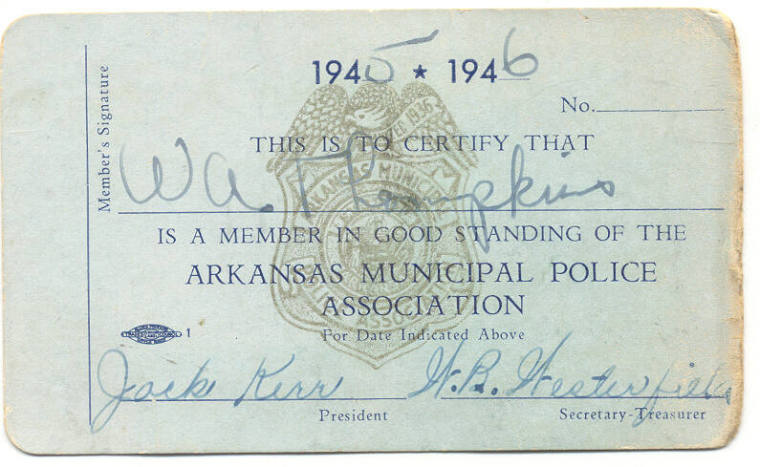 1945 ★ 1946
No.
THIS IS TO CERTIFY THAT
W A. Thompkins
IS A MEMBER IN GOOD STANDING OF THE
ARKANSAS MUNICIPAL POLICE
ASSOCIATION
For Date Indicated Above
1
Jack Kerr W.B. Westerfield
President Secretary-Treasurer
Member's Signature
ARKANSAS MUNICIPAL
1936